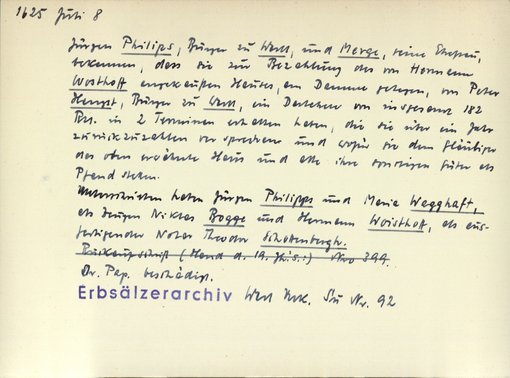 1625 Juli 8
Jürgen Philips, Bürger zu Werl, und Merge, seine Ehefrau,
bekennen, dass sie zur Bezahlung des von Hermann
Wosthoff angekauften Hauses, am Damme gelegen, von Peter
Hengst, Bürger zu Werl, ein Darlehen von insgesamt 182
Rtl. in 2 Terminen erhalten haben, die sie über ein Jahr
zurückzuzahlen versprechen und wofür sie dem Gläubiger
das oben erwähnte Haus und alle ihre sonstigen Güter als
Pfand stellen.
Unterschrieben haben Jürgen Philipps und Maria Wegghaft,
als Zeugen Niklas Bogge und Hermann Woisthoff, als aus-
fertigender Notar Theodor Schobenbergh.
Rückaufschrift (Hand d. 19. Jh.s.:) Nro 399.
Or. Pap. beschädigt.
Erbsälzerarchiv Werl Urk. Nr. 92